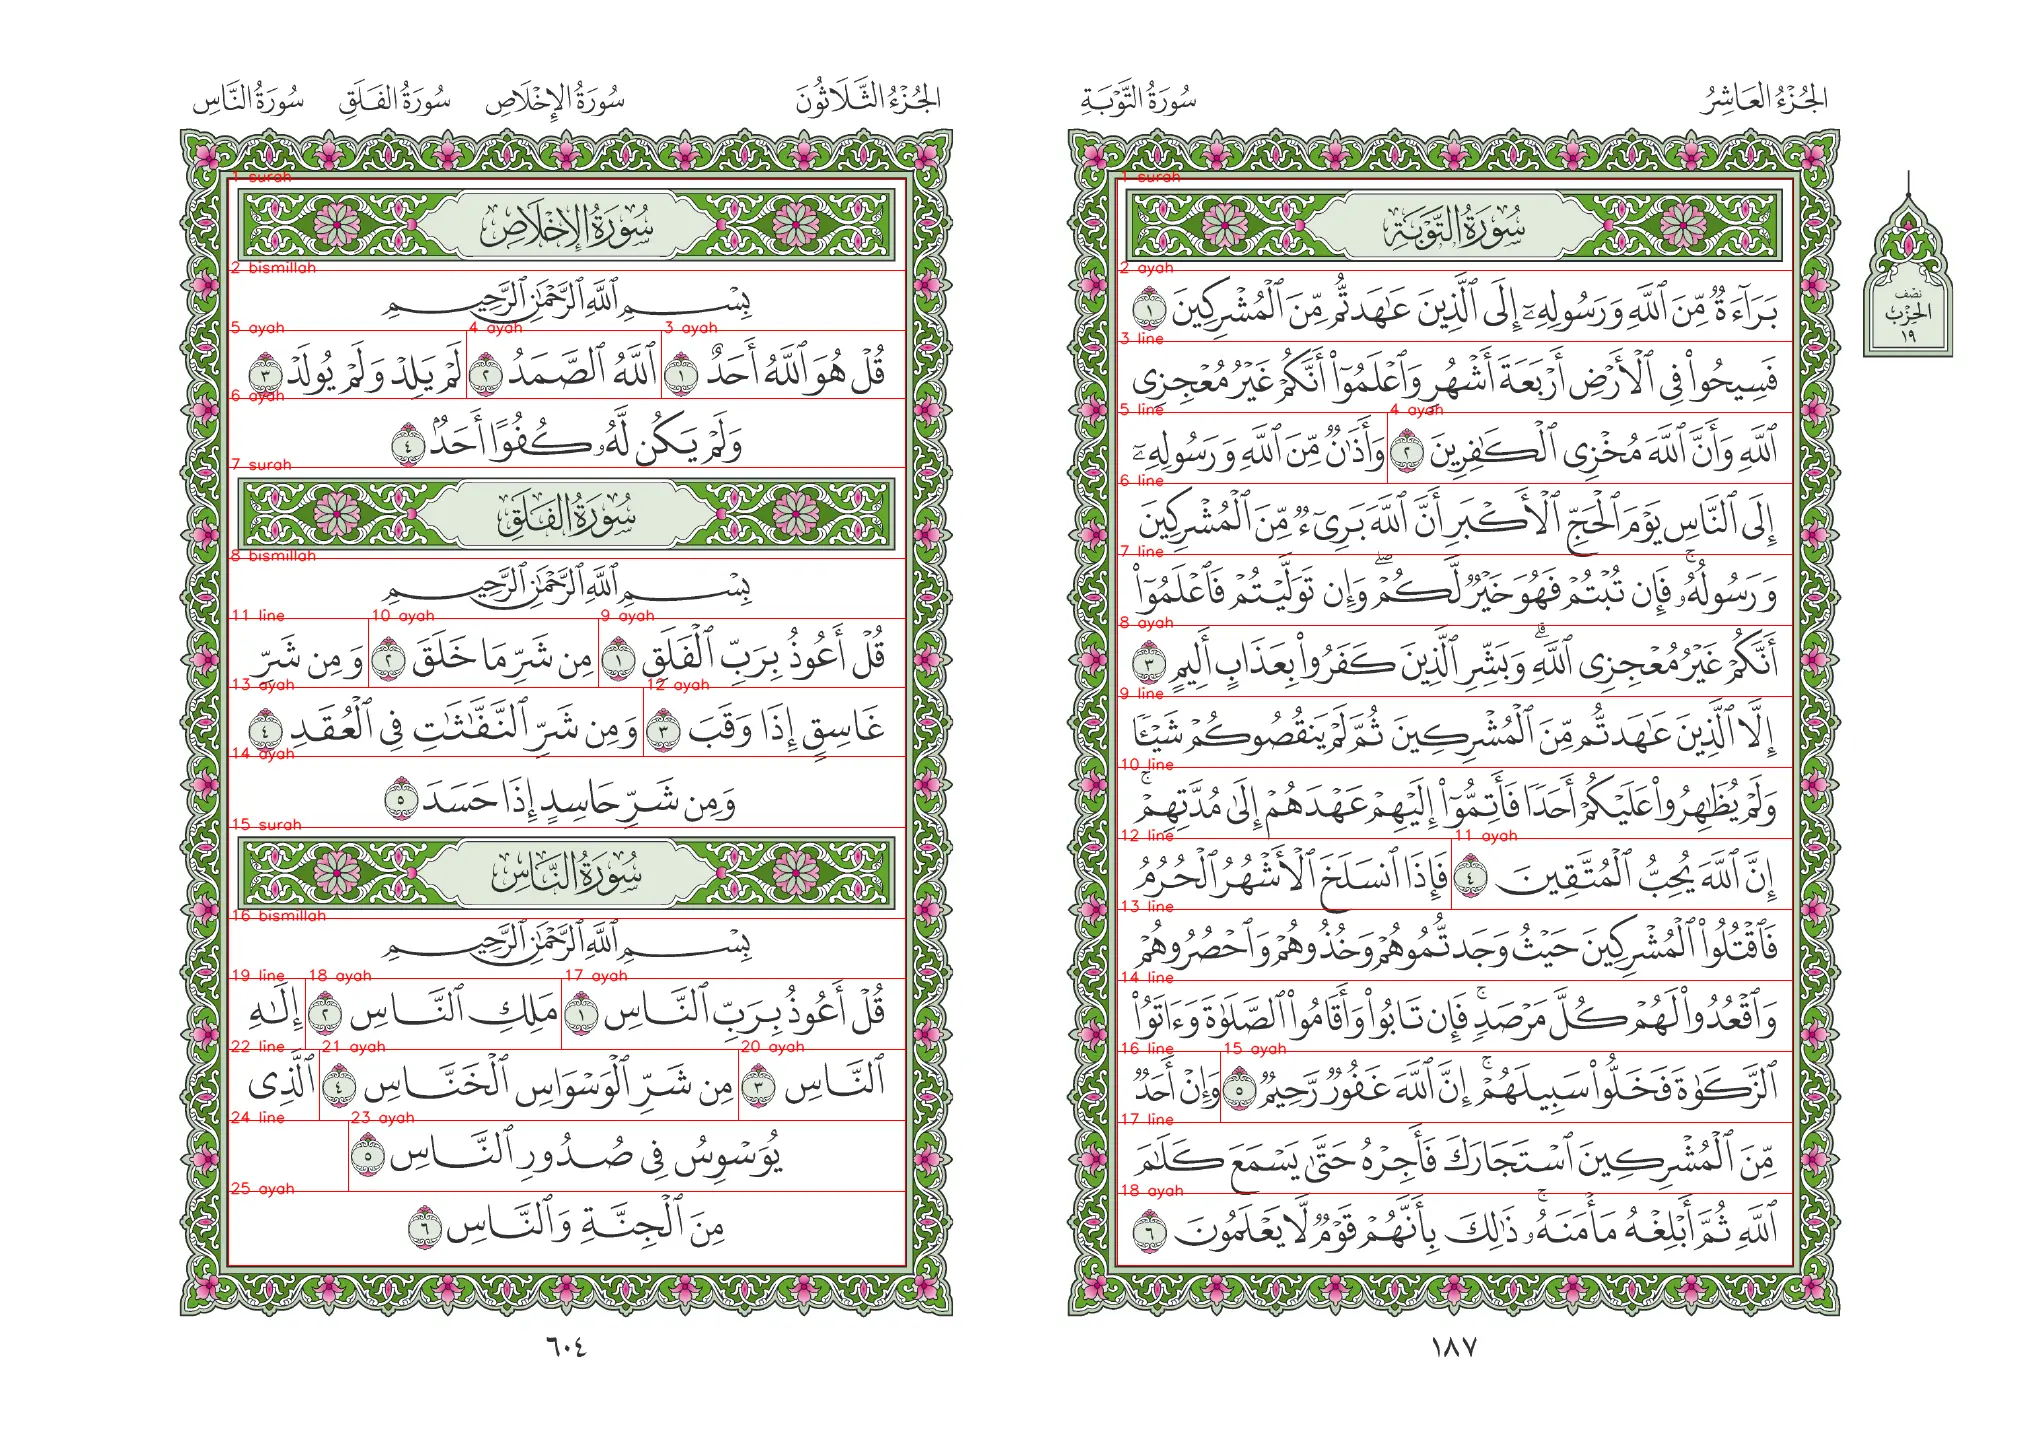 الجُزْءُ العَاشِرُ
سُورَةُ التَّوْبَةِ
نصف
الحِزْب
١٩
1 surah
سُورَةُ التَّوْبَةِ
2 ayah
بَرَآءَةٌ مِّنَ ٱللَّهِ وَرَسُولِهِۦٓ إِلَى ٱلَّذِينَ عَٰهَدتُّم مِّنَ ٱلْمُشْرِكِينَ ١
3 line
فَسِيحُوا۟ فِى ٱلْأَرْضِ أَرْبَعَةَ أَشْهُرٍ وَٱعْلَمُوٓا۟ أَنَّكُمْ غَيْرُ مُعْجِزِى
4 ayah
5 line
ٱللَّهِ وَأَنَّ ٱللَّهَ مُخْزِى ٱلْكَٰفِرِينَ ٢ وَأَذَٰنٌ مِّنَ ٱللَّهِ وَرَسُولِهِۦٓ
6 line
إِلَى ٱلنَّاسِ يَوْمَ ٱلْحَجِّ ٱلْأَكْبَرِ أَنَّ ٱللَّهَ بَرِىٓءٌ مِّنَ ٱلْمُشْرِكِينَ
7 line
وَرَسُولُهُۥۚ فَإِن تُبْتُمْ فَهُوَ خَيْرٌ لَّكُمْۖ وَإِن تَوَلَّيْتُمْ فَٱعْلَمُوٓا۟
8 ayah
أَنَّكُمْ غَيْرُ مُعْجِزِى ٱللَّهِۗ وَبَشِّرِ ٱلَّذِينَ كَفَرُوا۟ بِعَذَابٍ أَلِيمٍ ٣
9 line
إِلَّا ٱلَّذِينَ عَٰهَدتُّم مِّنَ ٱلْمُشْرِكِينَ ثُمَّ لَمْ يَنقُصُوكُمْ شَيْـًٔا
10 line
وَلَمْ يُظَٰهِرُوا۟ عَلَيْكُمْ أَحَدًا فَأَتِمُّوٓا۟ إِلَيْهِمْ عَهْدَهُمْ إِلَىٰ مُدَّتِهِمْۚ
11 ayah
12 line
إِنَّ ٱللَّهَ يُحِبُّ ٱلْمُتَّقِينَ ٤ فَإِذَا ٱنسَلَخَ ٱلْأَشْهُرُ ٱلْحُرُمُ
13 line
فَٱقْتُلُوا۟ ٱلْمُشْرِكِينَ حَيْثُ وَجَدتُّمُوهُمْ وَخُذُوهُمْ وَٱحْصُرُوهُمْ
14 line
وَٱقْعُدُوا۟ لَهُمْ كُلَّ مَرْصَدٍۚ فَإِن تَابُوا۟ وَأَقَامُوا۟ ٱلصَّلَوٰةَ وَءَاتَوُا۟
15 ayah
16 line
ٱلزَّكَوٰةَ فَخَلُّوا۟ سَبِيلَهُمْۚ إِنَّ ٱللَّهَ غَفُورٌ رَّحِيمٌ ٥ وَإِنْ أَحَدٌ
17 line
مِّنَ ٱلْمُشْرِكِينَ ٱسْتَجَارَكَ فَأَجِرْهُ حَتَّىٰ يَسْمَعَ كَلَٰمَ
18 ayah
ٱللَّهِ ثُمَّ أَبْلِغْهُ مَأْمَنَهُۥۚ ذَٰلِكَ بِأَنَّهُمْ قَوْمٌ لَّا يَعْلَمُونَ ٦
١٨٧
الجُزْءُ الثَّلَاثُونَ
سُورَةُ الإِخْلَاصِ
سُورَةُ الفَلَقِ
سُورَةُ النَّاسِ
1 surah
سُورَةُ الإِخْلَاصِ
2 bismillah
بِسْمِ ٱللَّهِ ٱلرَّحْمَٰنِ ٱلرَّحِيمِ
3 ayah
4 ayah
5 ayah
قُلْ هُوَ ٱللَّهُ أَحَدٌ ١ ٱللَّهُ ٱلصَّمَدُ ٢ لَمْ يَلِدْ وَلَمْ يُولَدْ ٣
6 ayah
وَلَمْ يَكُن لَّهُۥ كُفُوًا أَحَدٌۢ ٤
7 surah
سُورَةُ الفَلَقِ
8 bismillah
بِسْمِ ٱللَّهِ ٱلرَّحْمَٰنِ ٱلرَّحِيمِ
9 ayah
10 ayah
11 line
قُلْ أَعُوذُ بِرَبِّ ٱلْفَلَقِ ١ مِن شَرِّ مَا خَلَقَ ٢ وَمِن شَرِّ
12 ayah
13 ayah
غَاسِقٍ إِذَا وَقَبَ ٣ وَمِن شَرِّ ٱلنَّفَّٰثَٰتِ فِى ٱلْعُقَدِ ٤
14 ayah
وَمِن شَرِّ حَاسِدٍ إِذَا حَسَدَ ٥
15 surah
سُورَةُ النَّاسِ
16 bismillah
بِسْمِ ٱللَّهِ ٱلرَّحْمَٰنِ ٱلرَّحِيمِ
17 ayah
18 ayah
19 line
قُلْ أَعُوذُ بِرَبِّ ٱلنَّاسِ ١ مَلِكِ ٱلنَّاسِ ٢ إِلَٰهِ
20 ayah
21 ayah
22 line
ٱلنَّاسِ ٣ مِن شَرِّ ٱلْوَسْوَاسِ ٱلْخَنَّاسِ ٤ ٱلَّذِى
23 ayah
24 line
يُوَسْوِسُ فِى صُدُورِ ٱلنَّاسِ ٥
25 ayah
مِنَ ٱلْجِنَّةِ وَٱلنَّاسِ ٦
٦٠٤